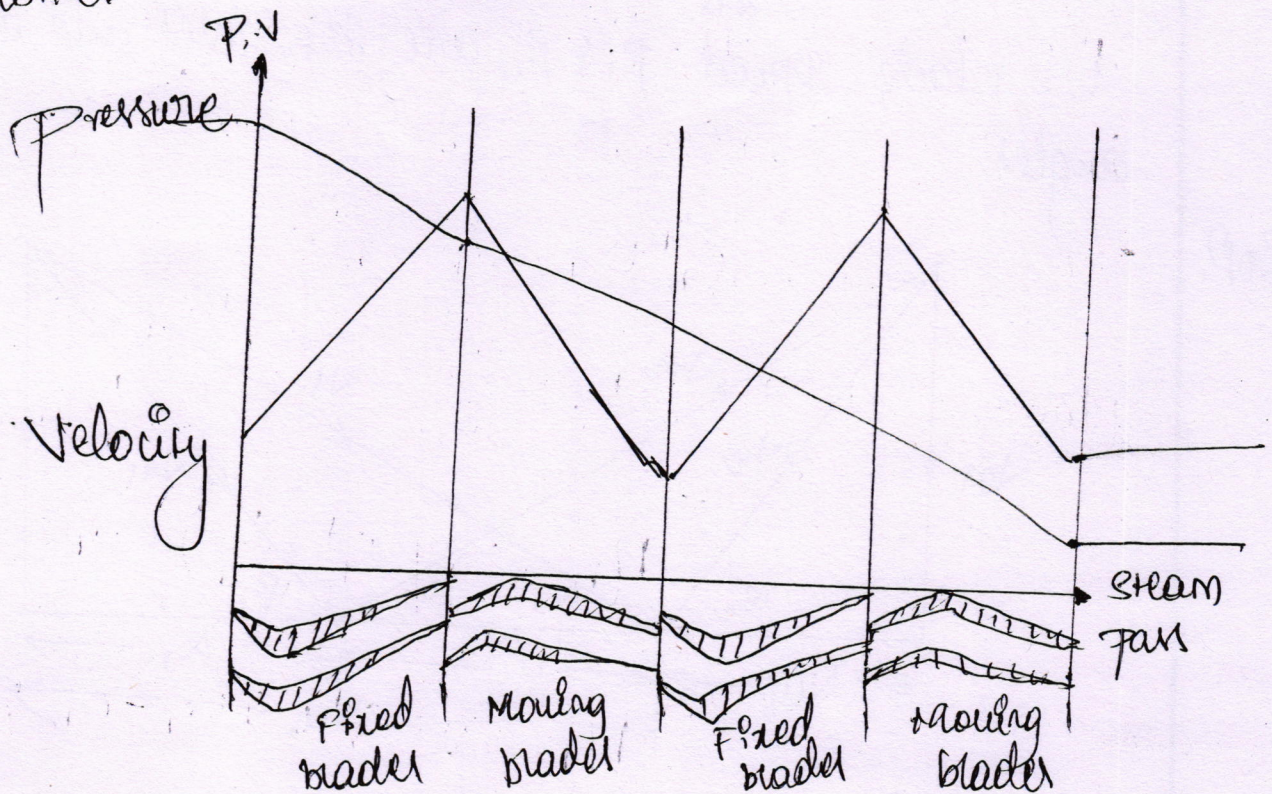 P, V
Pressure
Velocity
Steam
Pass
Fixed
blades
Moving
blades
Fixed
blades
Moving
blades